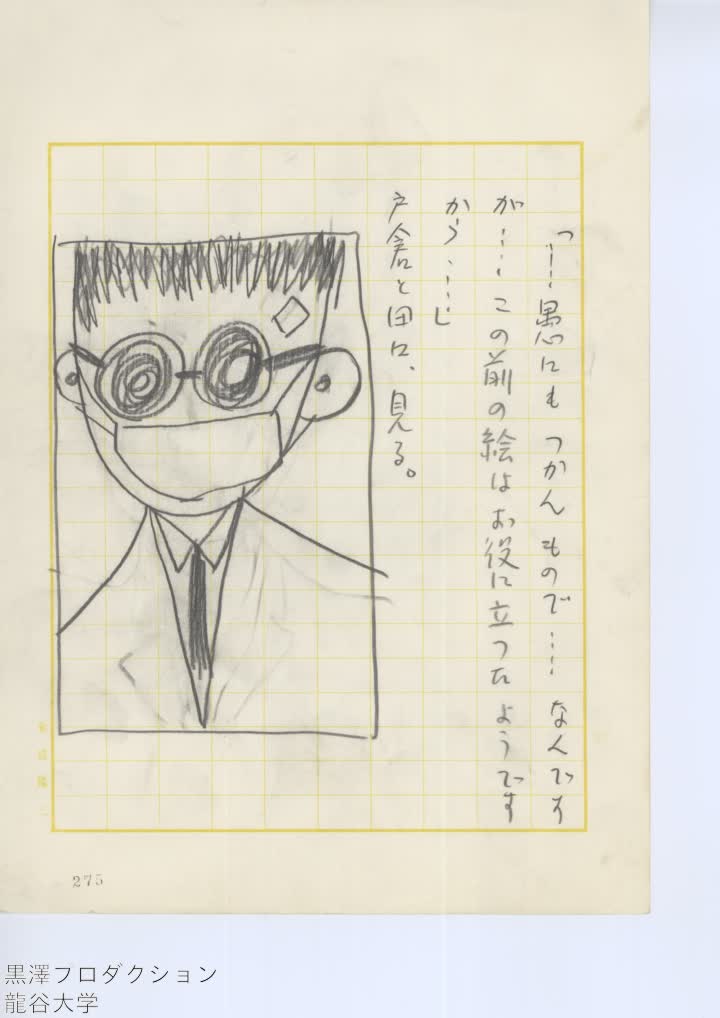 「……愚にも つかん もので…… なんです
が…… この前の絵は お役に立つた ようです
から……」
戸倉と田口、見る。
275
黒澤プロダクション
龍谷大学